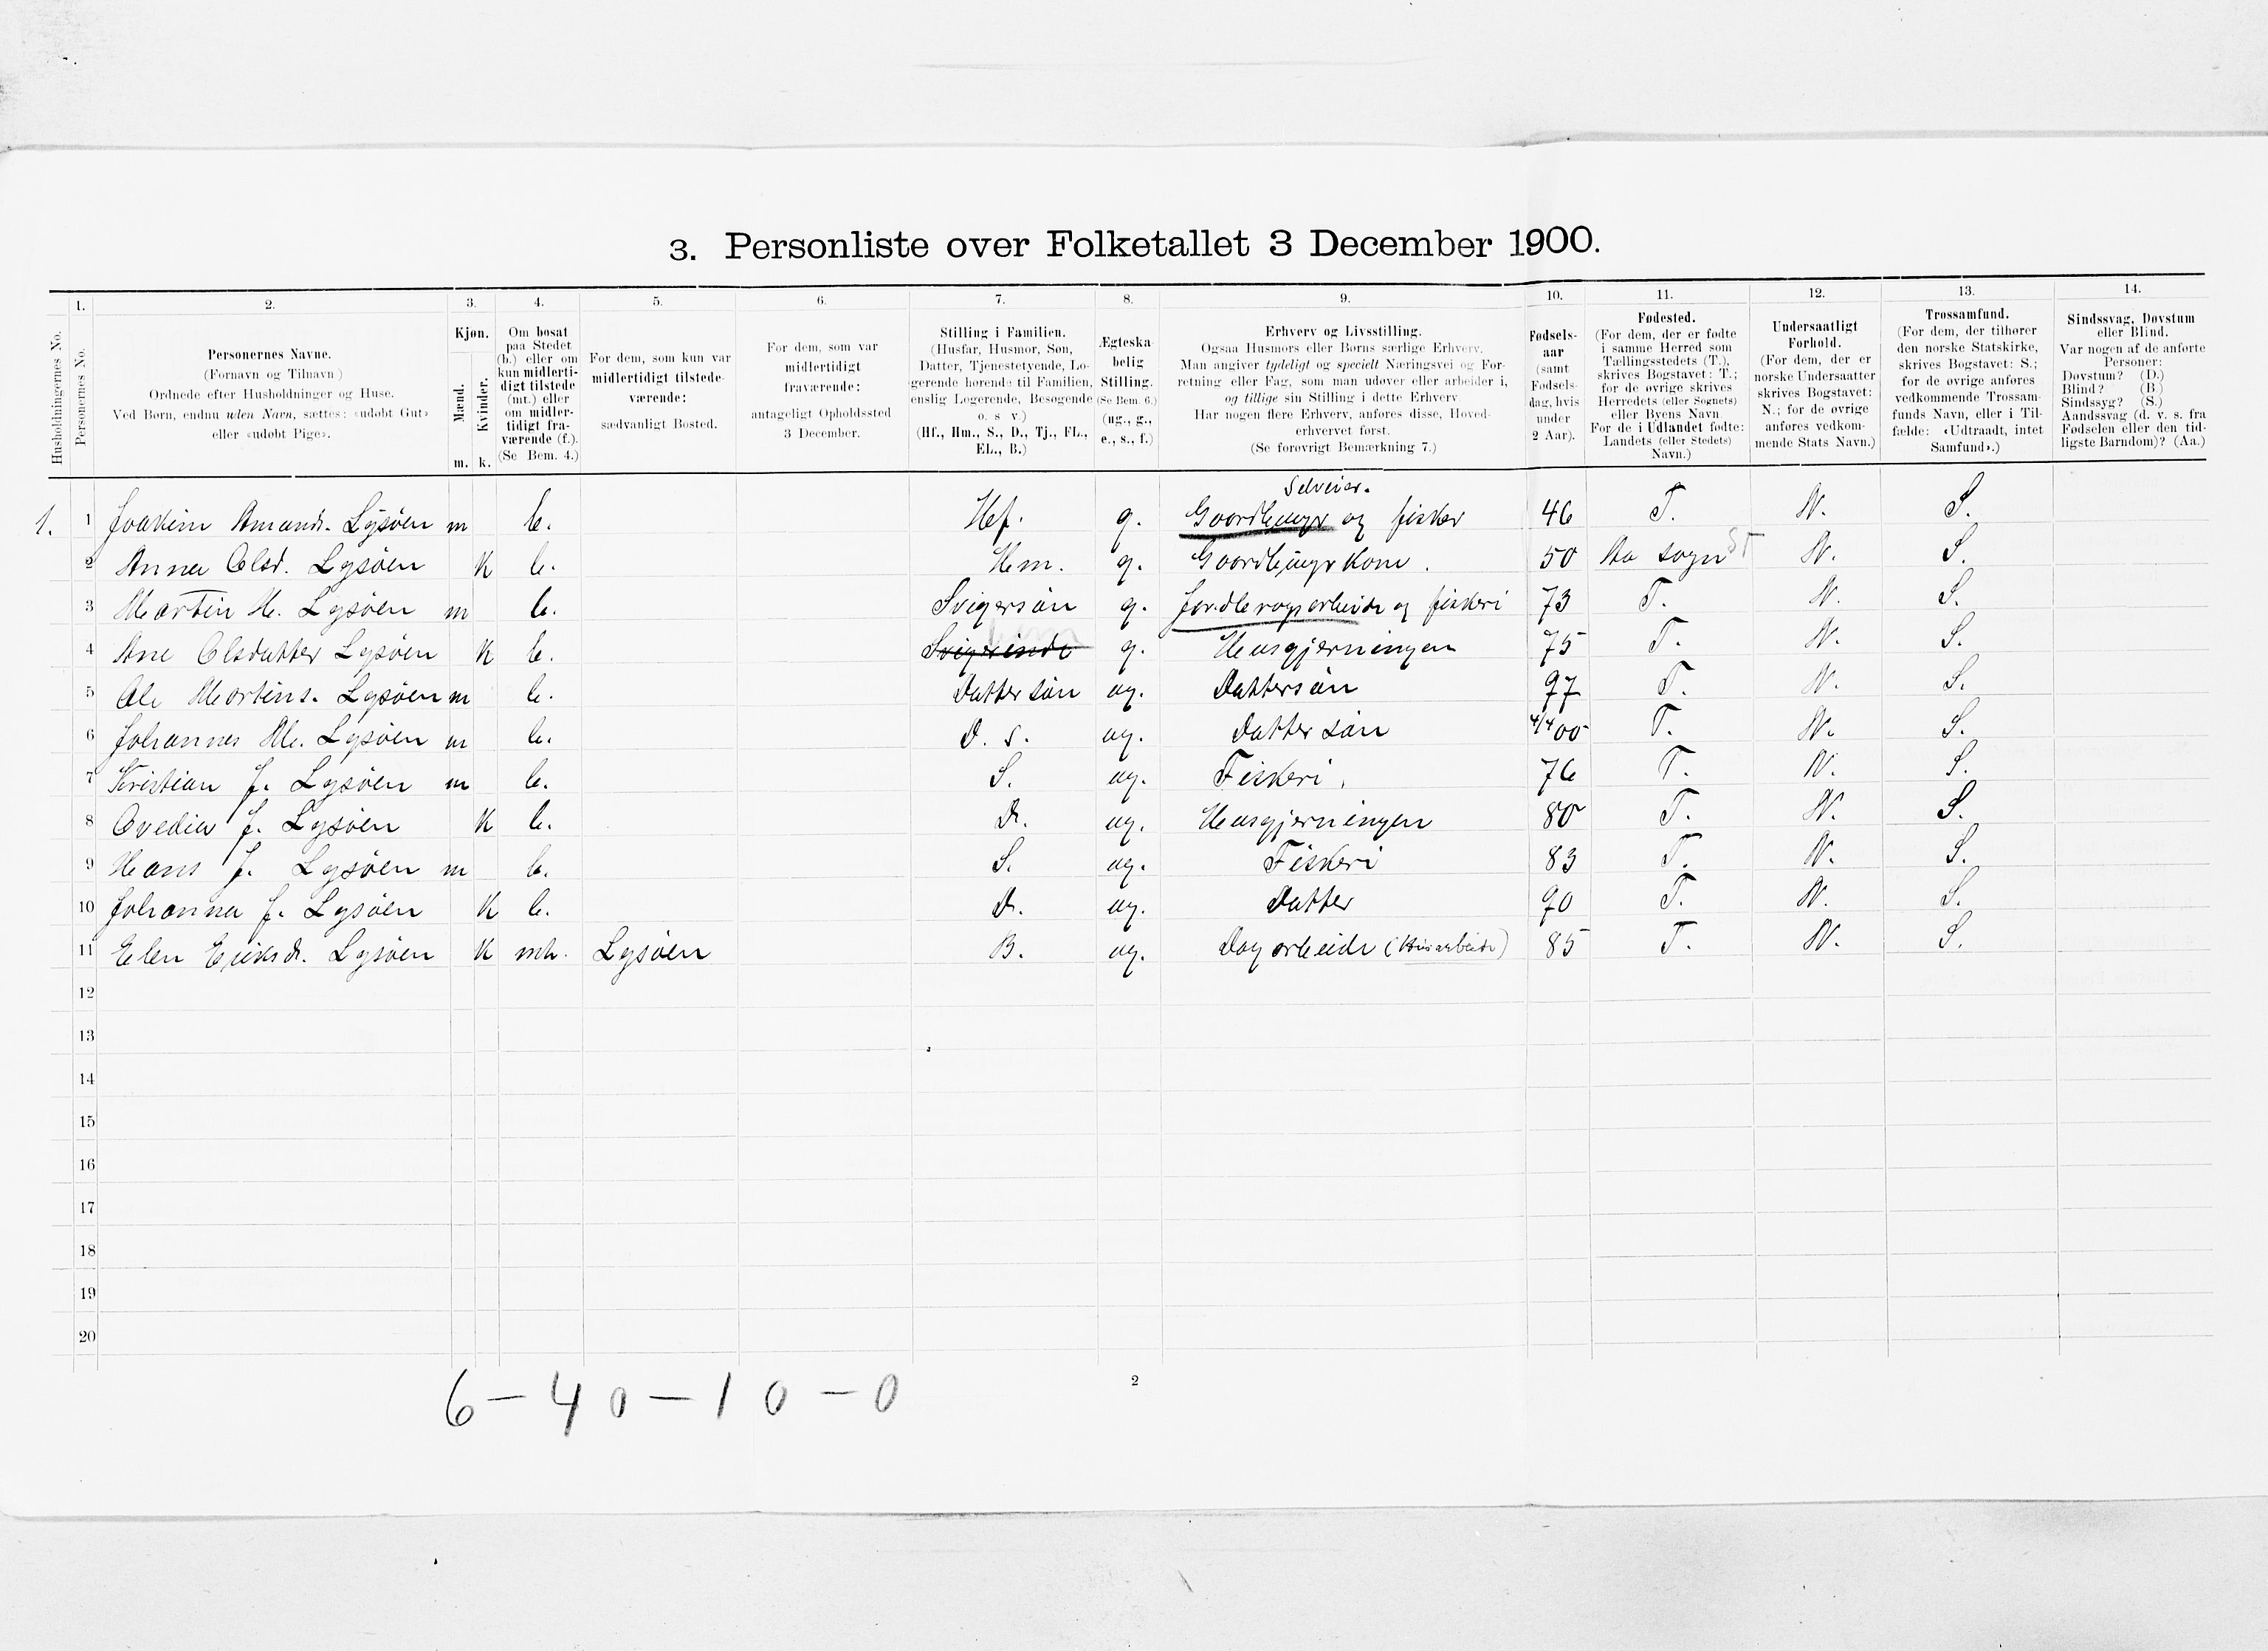 3. Personliste over Folketallet 3 December 1900.
1. 2. 3. 4. 5. 6. 7. 8. 9. 10. 11. 12. 13. 14.
Husholdningernes No.
Personernes No.
Personernes Navne.
(Fornavn og Tilnavn)
Ordnede efter Husholdninger og Huse.
Ved Børn, endnu uden Navn, sættes: «udøbt Gut»
eller «udøbt Pige».
Kjøn.
Mænd.
Kvinder.
m. k.
Om bosat
paa Stedet
(b.) eller om
kun midlerti-
digt tilstede
(mt.) eller
om midler-
tidigt fra-
værende (f.).
(Se Bem. 4.)
For dem, som kun var
midlertidigt tilstede-
værende:
sædvanligt Bosted.
For dem, som var
midlertidigt
fraværende:
antageligt Opholdssted
3 December.
Stilling i Familien.
(Husfar, Husmor, Søn,
Datter, Tjenestetyende, Lo-
gerende hørende til Familien,
enslig Logerende, Besøgende
o. s. v.)
(Hf., Hm., S., D., Tj., FL.,
EL., B.)
Ægteska-
belig
Stilling.
(Se Bem. 6.)
(ug., g.,
e., s., f.)
Erhverv og Livsstilling.
Ogsaa Husmors eller Børns særlige Erhverv.
Man angiver tydeligt og specielt Næringsvei og For-
retning eller Fag, som man udøver eller arbeider i,
og tillige sin Stilling i dette Erhverv.
Har nogen flere Erhverv, anføres disse, Hoved-
erhvervet først.
(Se forøvrigt Bemærkning 7.)
Fødsels-
aar
(samt
Fødsels-
dag, hvis
under
2 Aar).
Fødested.
(For dem, der er fødte
i samme Herred som
Tællingsstedets (T.),
skrives Bogstavet: T.;
for de øvrige skrives
Herredets (eller Sognets)
eller Byens Navn
For de i Udlandet fødte:
Landets (eller Stedets)
Navn.)
Undersaatligt
Forhold.
(For dem, der er
norske Undersaatter
skrives Bogstavet:
N.; for de øvrige
anføres vedkom-
mende Stats Navn.)
Trossamfund.
(For dem, der tilhører
den norske Statskirke,
skrives Bogstavet: S.;
for de øvrige anføres
vedkommende Trossam-
funds Navn, eller i Til-
fælde: «Udtraadt, intet
Samfund».)
Sindssvag, Døvstum
eller Blind.
Var nogen af de anførte
Personer:
Døvstum? (D.)
Blind? (B.)
Sindssyg? (S.)
Aandssvag (d. v. s. fra
Fødselen eller den tid-
ligste Barndom)? (Aa.)
Selveier.
1. 1 Joakim Amunds. Lysøen m b. Hf. g. Gaardbruger og fisker 46 T. N. S.
2 Anna Olsd. Lysøen K b. Hm. g. Gaardbrugerkone. 50 Aa sogn ST N. S.
3 Martin H. Lysøen m b. Svigersøn g. Jordbrugsarbeide og fiskeri 73 T. N. S.
4 Ane Olsdatter Lysøen K b. g. Husgjerningen 75 T. N. S.
5 Ole Martins. Lysøen m b. Dattersøn ug. Dattersøn 97 T. N. S.
6 Johannes M. Lysøen m b. D. s. ug. Dattersøn 4/4 00 T. N. S.
7 Kristian J. Lysøen m b. S. ug. Fiskeri. 76 T. N. S.
8 Ovedia J. Lysøen K b. D. ug. Husgjerningen 80 T. N. S.
9 Hans J. Lysøen m b. S. ug. Fiskeri 83 T. N. S.
10 Johanna J. Lysøen K b. D. ug. Datter 90 T. N. S.
11 Elen Eriksd. Lysøen K mt. Lysøen B. ug. Dagarbeide (Husarbeide) 85 T. N. S.
12
13
14
15
16
17
18
19
20
6 – 40 – 10 – 0
2